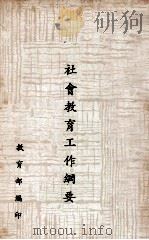 研究
社會教育工作綱要
教育部編印